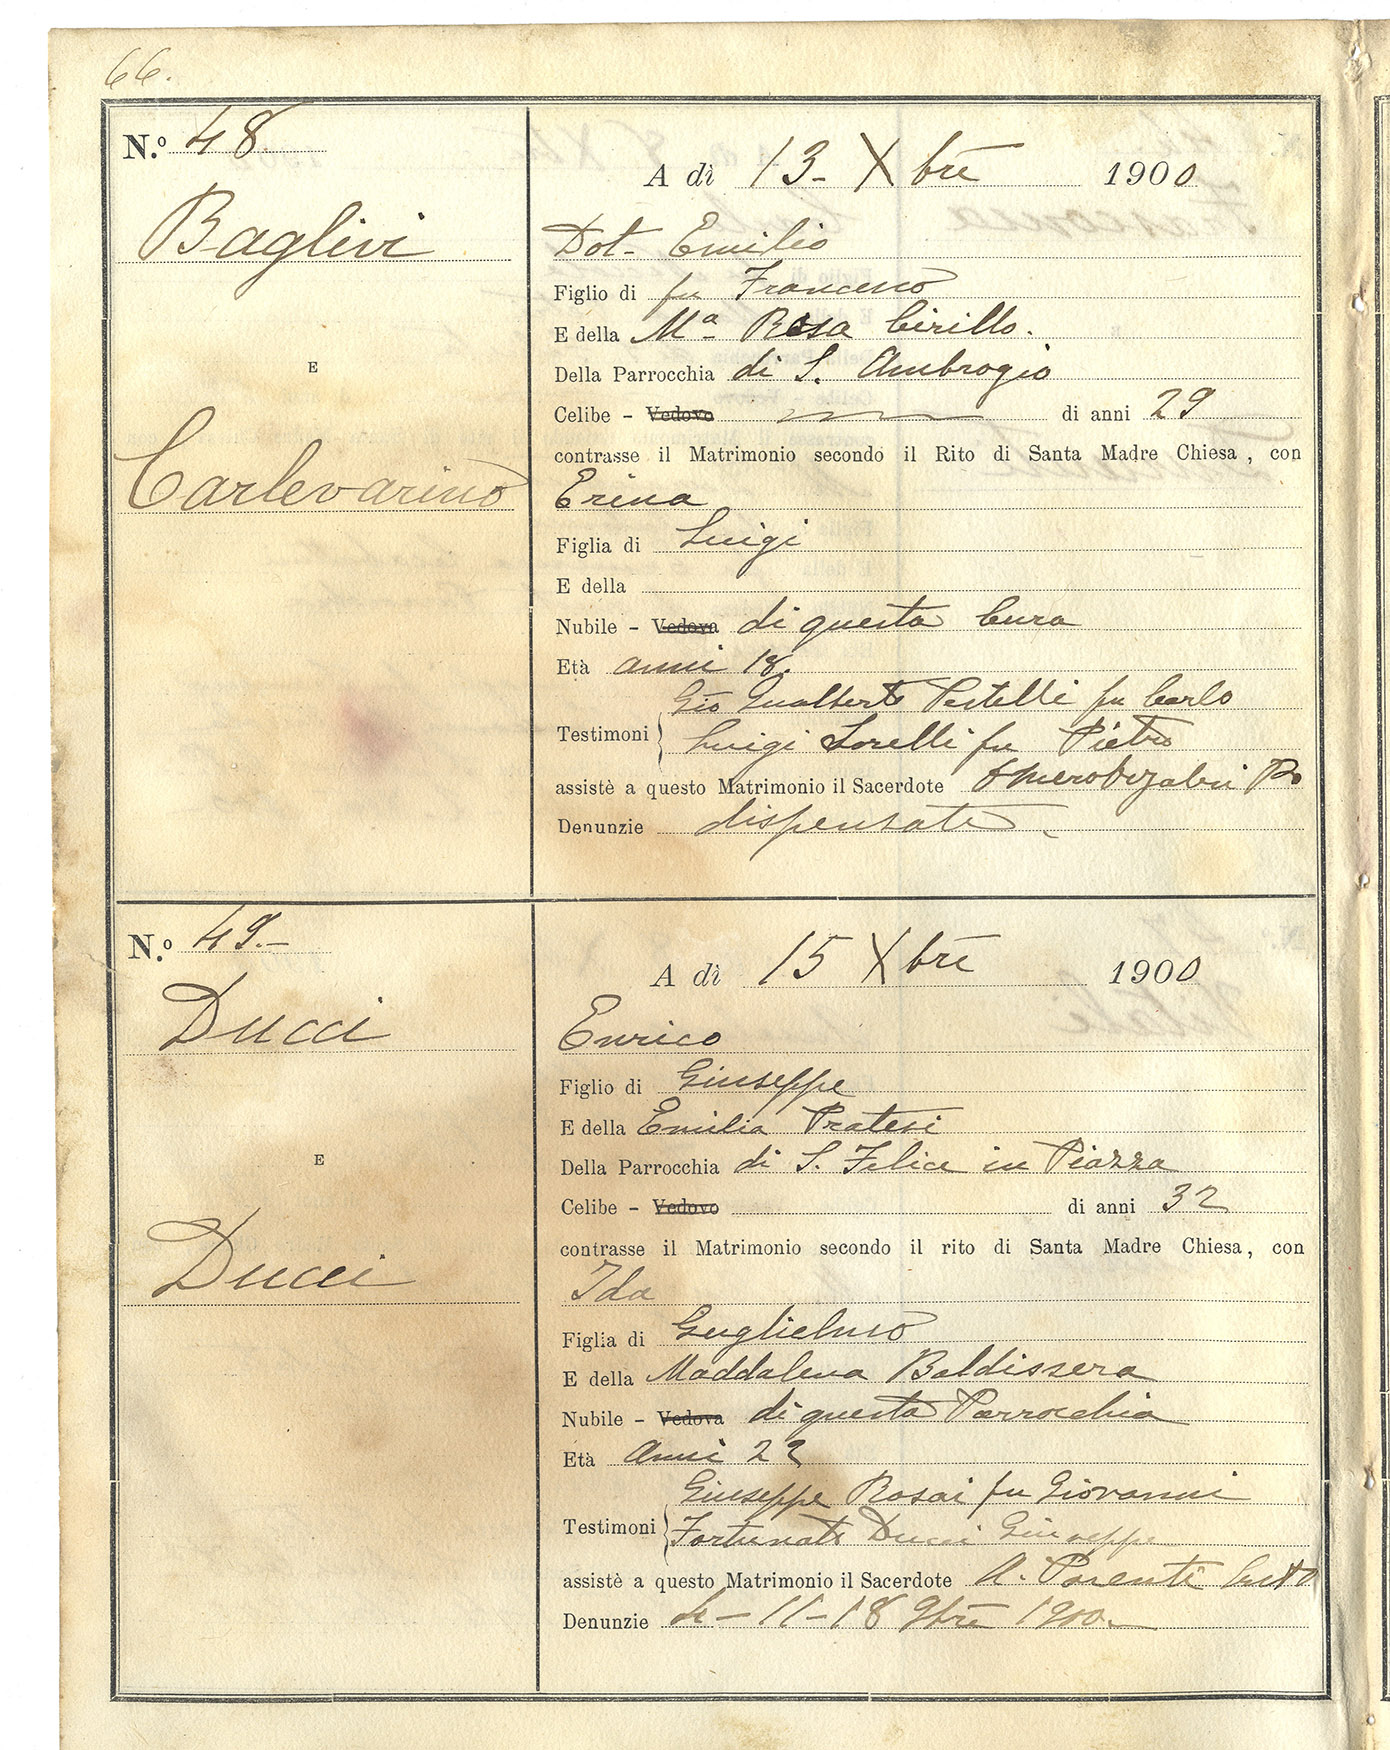 66.
N.º 48.
A dì 13- Xbre 1900
Baglivi
Dot. Emilio
Figlio di fu Francesco
E della Mª Rosa Cirillo.
E
Della Parrocchia di S. Ambrogio
Celibe - Vedovo di anni 29
contrasse il Matrimonio secondo il Rito di Santa Madre Chiesa, con
Carlevarino
Erina
Figlia di Luigi
E della
Nubile - Vedova di questa Cura
Età anni 18.
Gio Gualberto Pestelli fu Carlo
Testimoni Luigi Lorelli fu Pietro
assistè a questo Matrimonio il Sacerdote
Denunzie dispensate
N.º 49.-
A dì 15 Xbre 1900
Ducci
Enrico
Figlio di Giuseppe
E della Emilia Pratesi
E
Della Parrocchia di S. Felice in Piazza
Celibe - Vedovo di anni 32
contrasse il Matrimonio secondo il rito di Santa Madre Chiesa, con
Ducci
Ida
Figlia di Guglielmo
E della Maddalena Baldissera
Nubile - Vedova di questa Parrocchia
Età Anni 22
Giuseppe Rosai fu Giovanni
Testimoni Fortunato Ducci Giuseppe
assistè a questo Matrimonio il Sacerdote A. Parenti
Denunzie 4-11-18 9bre 1900